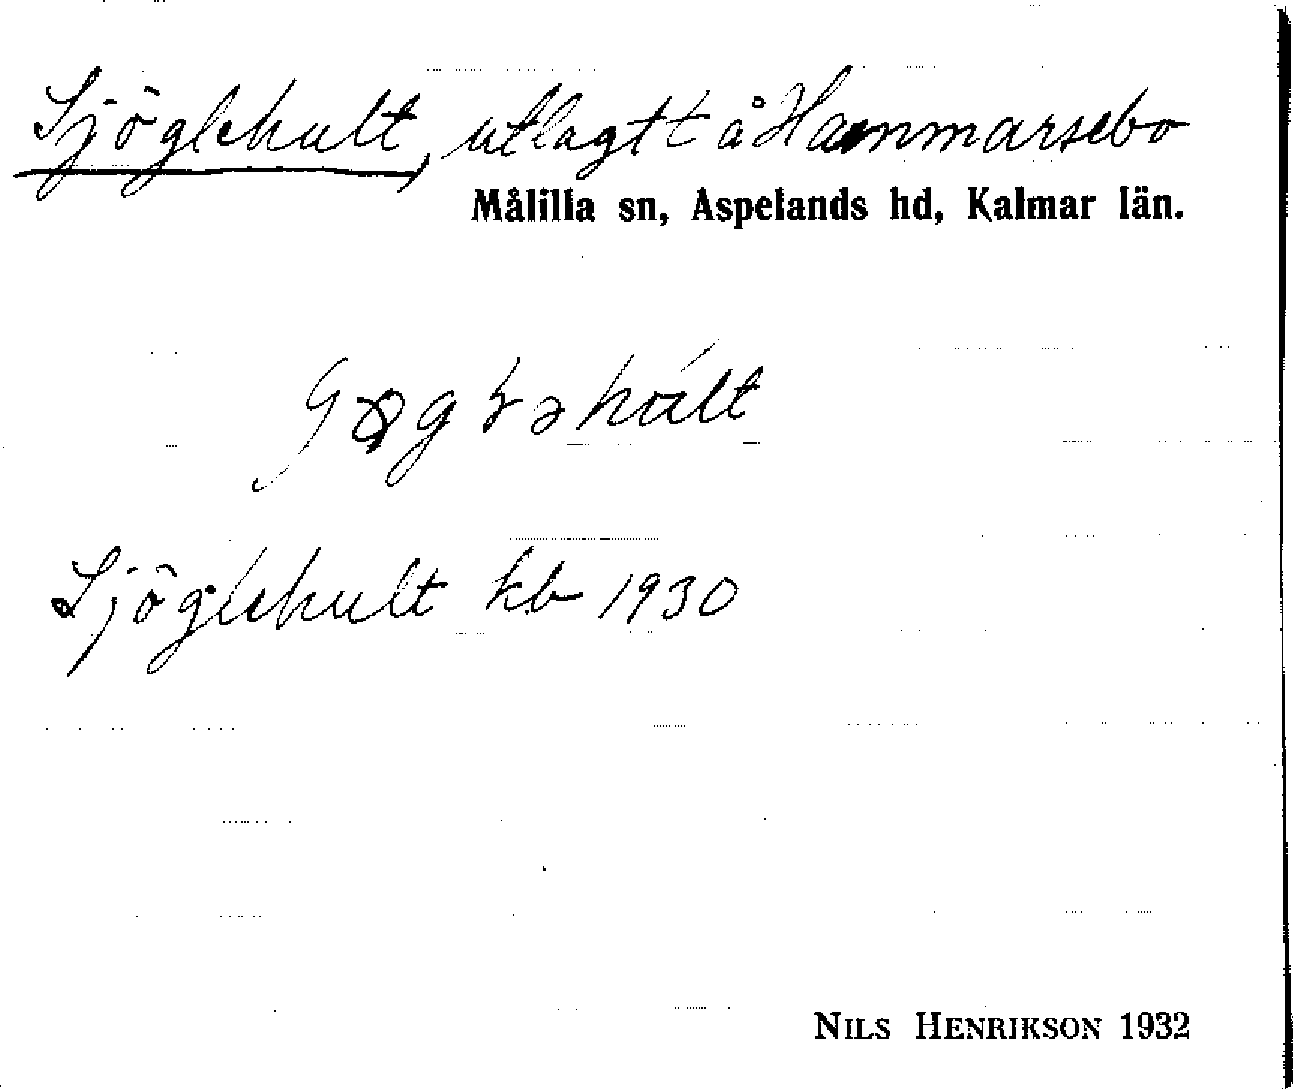 Sjöglehult, utlagt t å Hammarsebo
Målilla sn, Aspelands hd, Kalmar län.
Sjöglehult kb 1930
NILS HENRIKSON 1932